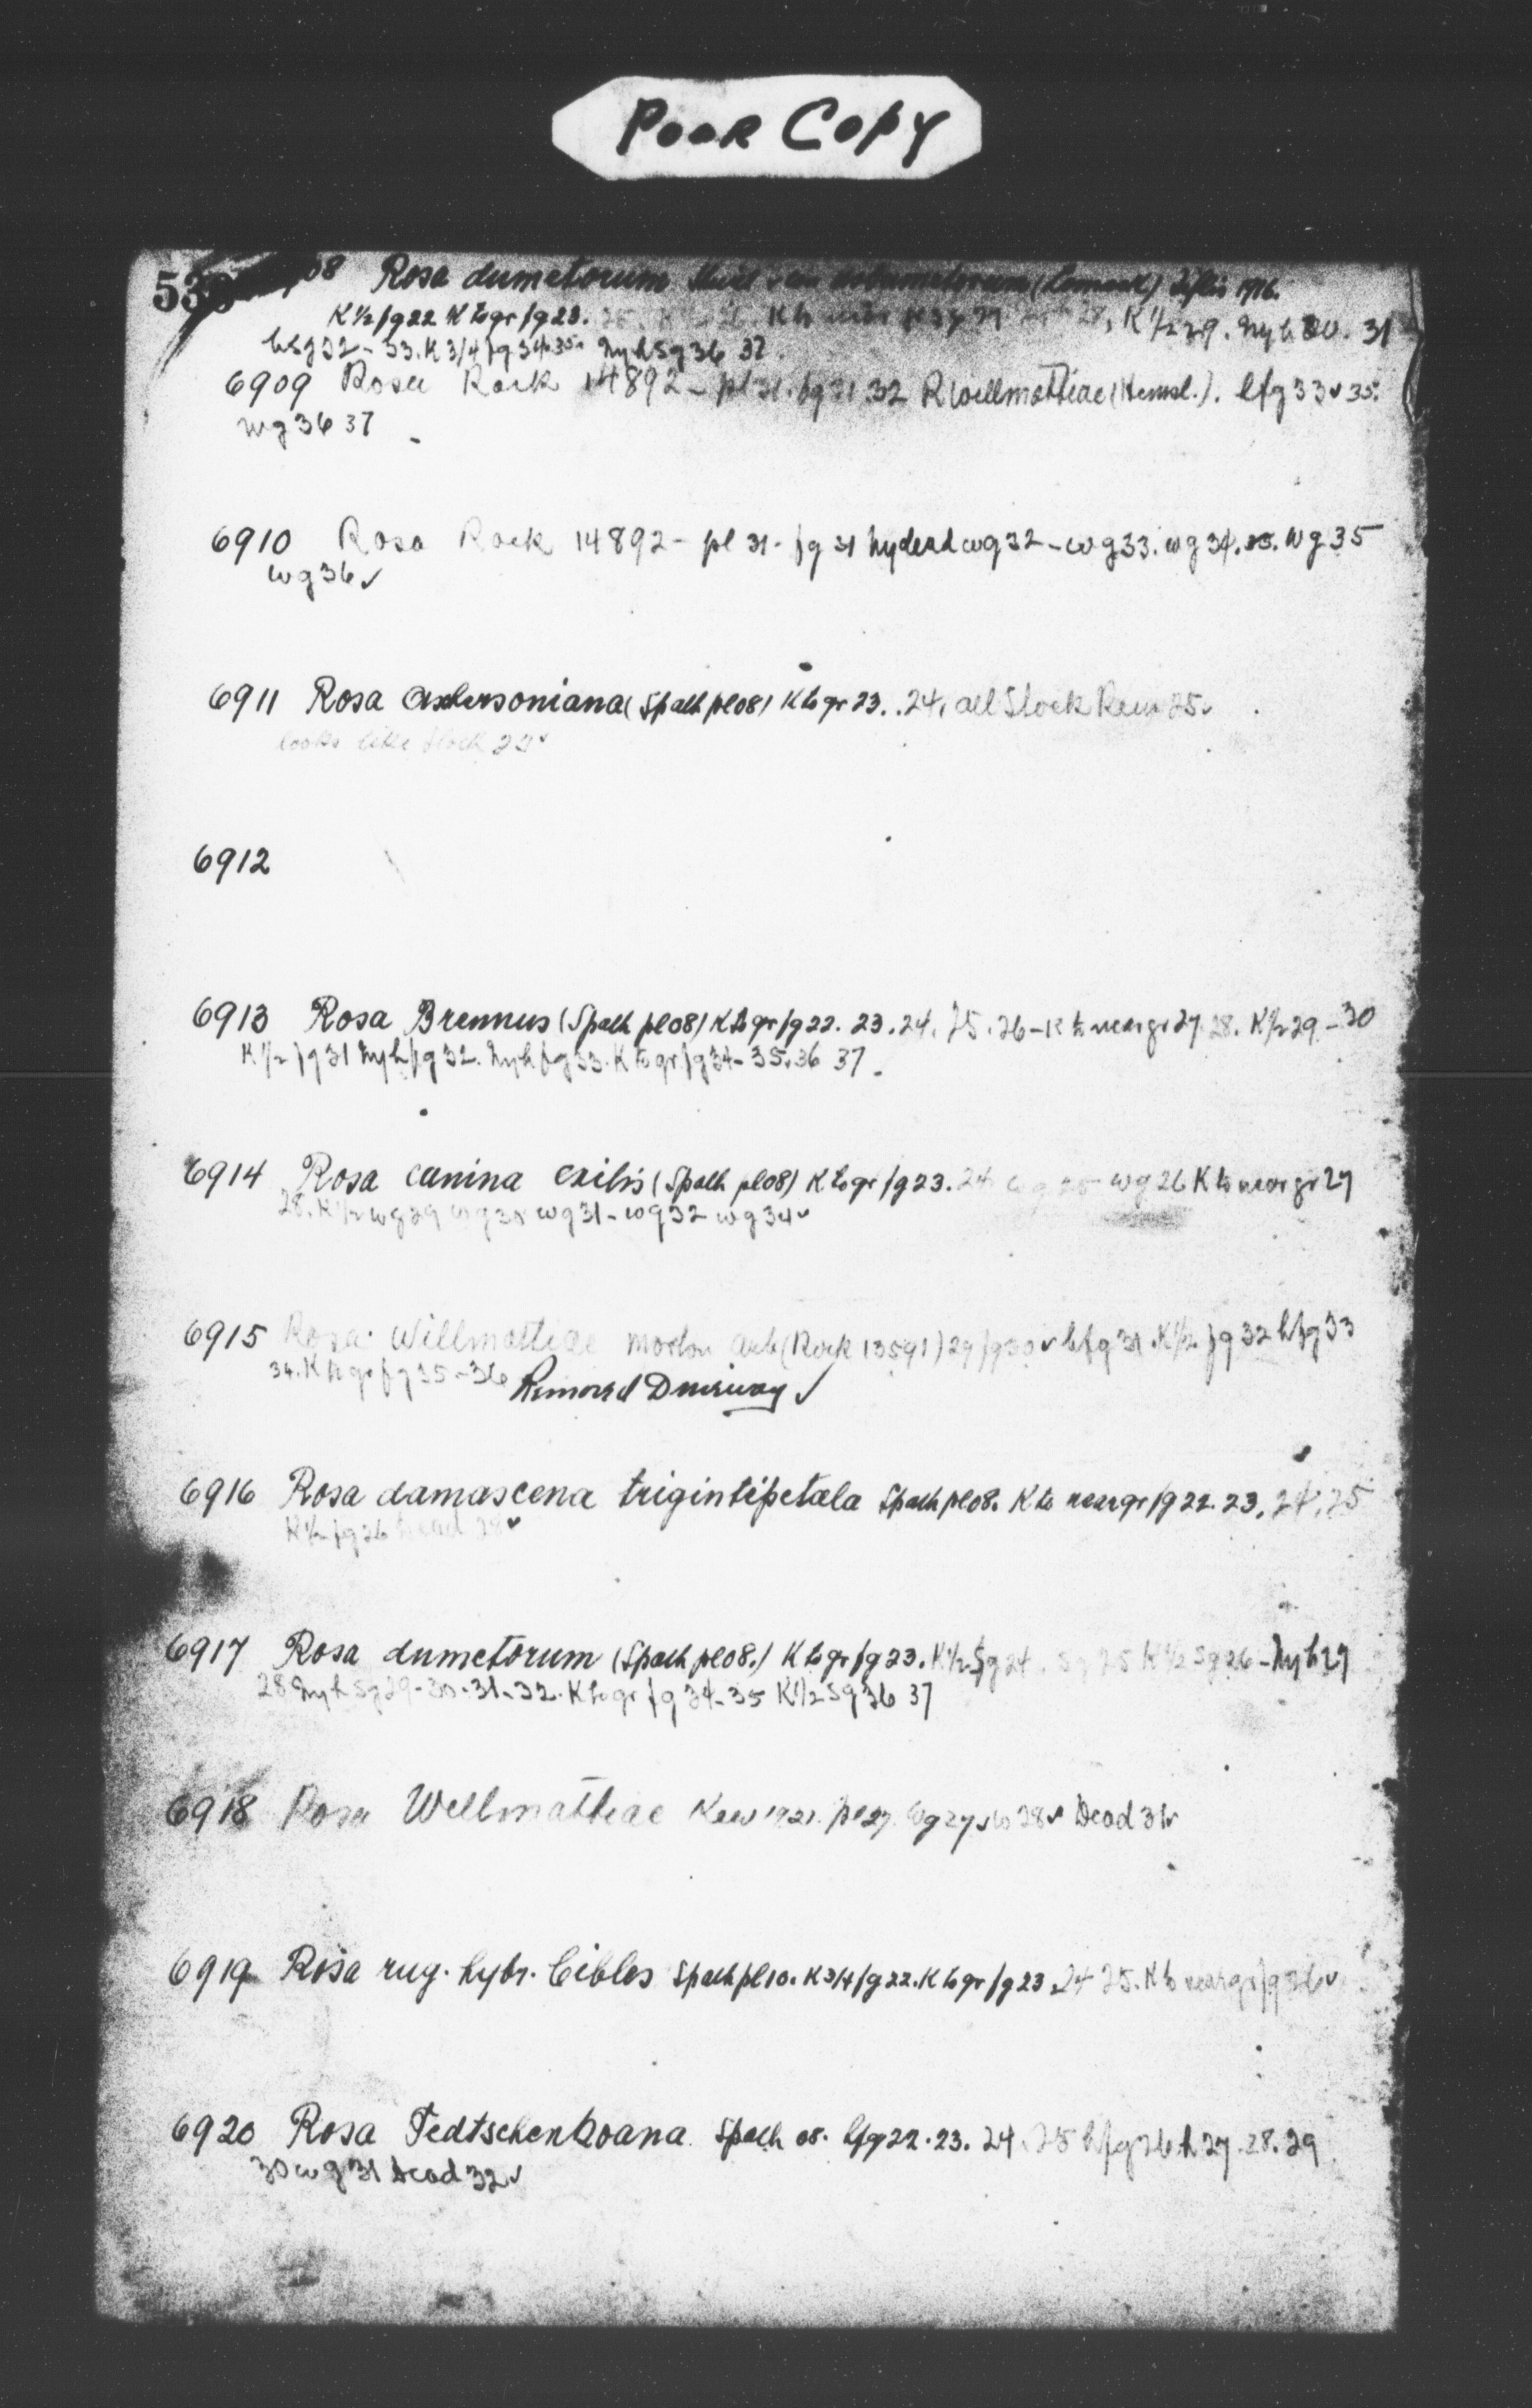 Poor Copy
08 Rosa dumetorum Tiflis 1916.
K ½ fg 22 K to gr fg 23. K ½ 29. 31
32 - 33. K 3/4 fg 34. 35. 36 37.
6909 Rosa Rock 14892 - pl 31. fg 31 32 R Willmottiae (Hemsl.). lfg 33 35.
wg 36 37
6910 Rosa Rock 14892 - pl 31 - fg 31 wg 32 - wg 33. wg 34. 35. wg 35
wg 36 ✓
6911 Rosa Aschersoniana (Spath pl 08) K to gr 23. 24, all Stock 25 ✓
looks like stock 24 ✓
6912
6913 Rosa Brennus (Spath pl 08) K to gr fg 22. 23. 24. 25. 26 - K to near gr 27. 28. K ½ 29 - 30
K ½ fg 31 fg 32. fg 33. K to gr fg 34 - 35. 36 37.
6914 Rosa canina exilis (Spath pl 08) K to gr fg 23. 24 wg 25 wg 26 K to near gr 27
28. K ½ wg 29 wg 30 wg 31 - wg 32 wg 34 ✓
6915 Rosa Willmottiae Morton Arb (Rock 13591) 29 fg 30 ✓ lfg 31. K ½ fg 32 lfg 33
34. K to gr fg 35 - 36 Removed Driveway ✓
6916 Rosa damascena trigintipetala Spath pl 08. K to near gr fg 22. 23. 24. 25
K ½ fg 26 Dead 28 ✓
6917 Rosa dumetorum (Spath pl 08.) K to gr fg 23. K ½ Sg 24. Sg 25 K ½ Sg 26 - 27
28 Sg 29 - 30 - 31 - 32. K to gr fg 34 - 35 K ½ Sg 36 37
6918 Rosa Willmottiae Kew 1921. pl 27. wg 27 ✓ 28 ✓ Dead 31 ✓
6919 Rosa rug. hybr. Cibles Spath pl 10. K 3/4 fg 22. K to gr fg 23. 24 25. K to near gr fg 26 ✓
6920 Rosa Fedtschenkoana. Spath 08. lfg 22. 23. 24. 25 lfg 26 27. 28. 29
30 wg 31 Dead 32 ✓